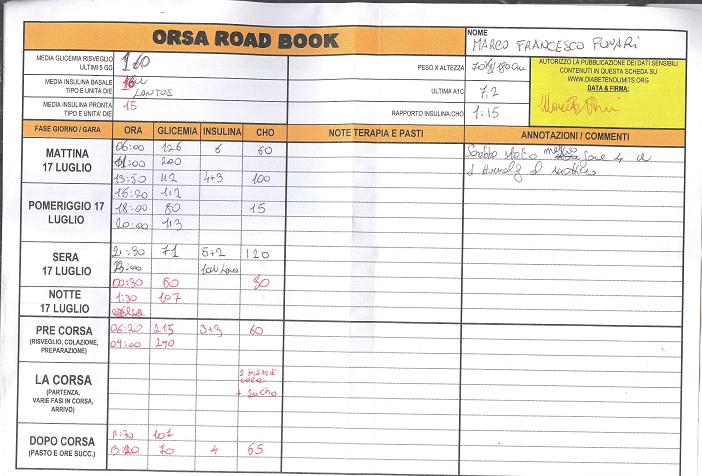 ORSA ROAD BOOK
NOME
MARCO FRANCESCO FUNARI
MEDIA GLICEMIA RISVEGLIO
ULTIMI 5 GG
160
PESO X ALTEZZA
70kg/180cm
MEDIA INSULINA BASALE
TIPO E UNITA' DIE
LANTUS
ULTIMA A1C
7.2
MEDIA INSULINA PRONTA
TIPO E UNITA' DIE
15
RAPPORTO INSULINA:CHO
1:15
AUTORIZZO LA PUBBLICAZIONE DEI DATI SENSIBILI
CONTENUTI IN QUESTA SCHEDA SU
WWW.DIABETENOLIMITS.ORG
DATA & FIRMA:
FASE GIORNO / GARA ORA GLICEMIA INSULINA CHO NOTE TERAPIA E PASTI ANNOTAZIONI / COMMENTI
MATTINA
17 LUGLIO
06:00 126 6 60
11:00 200
13:50 112 4+3 100
Sarebbe stato meglio fare 4 u
POMERIGGIO 17
LUGLIO
16:20 112
18:00 80 15
20:00 113
SERA
17 LUGLIO
21:30 71 5+2 120
23:00
00:30 60 30
NOTTE
17 LUGLIO
1:30 107
PRE CORSA
(RISVEGLIO, COLAZIONE,
PREPARAZIONE)
06:20 215 3+3 60
09:00 290
LA CORSA
(PARTENZA,
VARIE FASI IN CORSA,
ARRIVO)
+ 20 CHO
DOPO CORSA
(PASTO E ORE SUCC.)
11:30 107
13:20 70 4 65